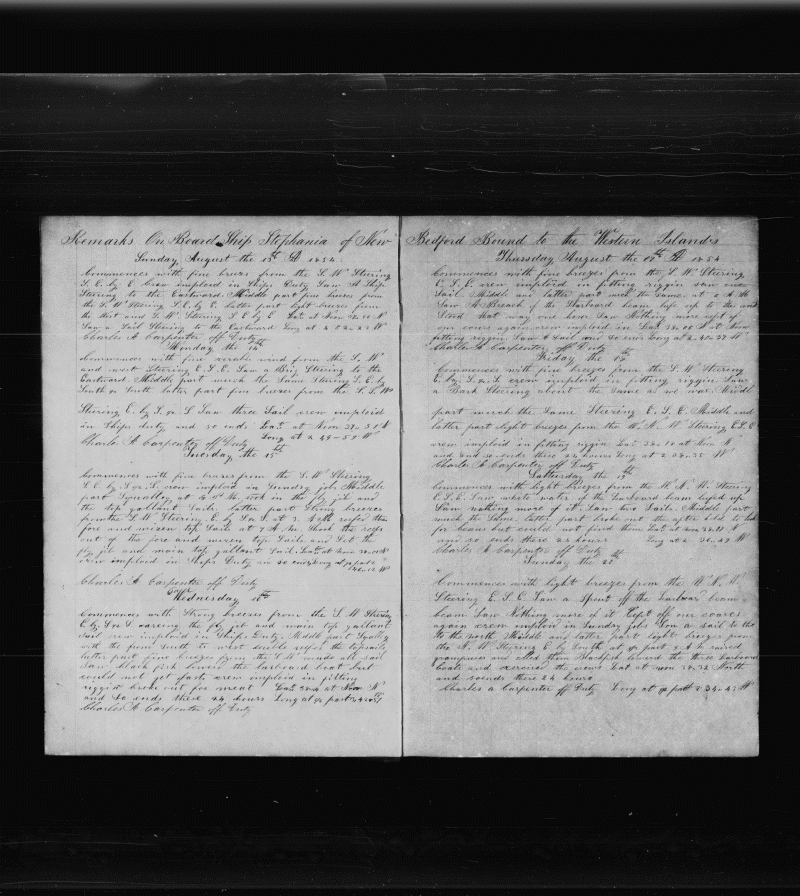 Remarks On Board Ship Stephania of New
Sunday, August the 13th AD 1854
Commences with fine brezes from the S. W. Stearing
S. E. by E Crew imploid in Ships Duty Saw A Ship
Stearing to the Eastward Middle part fine brezes from
the S. W Stearing S. E. by E latter part light brezes from
the West and S. W. Stearing S E by E Lat at Noon
Saw a Sail Stearing to the Eastward Long at
Charles A Carpenter off Duty
Monday the 14th
Commences with fine wind from the S. W
and west Stearing E. S. E. Saw a Brig Stearing to the
Eastward. Middle part much the Same Stearing S. E. by
South latter part fine brezes from the S. S. W
Stearing E. by S. Saw three Sail crew imploid
in Ships duty and so ends Lat at Noon
Long at 49-59 W
Charles A Carpenter off Duty
Tuesday the 15th
Commences with fine brezes from the S. W Stearing
S. E. by S crew imploid in Sundry jobs Middle
part Squalley at took in the fly jib and
the top gallant Sails. latter part Strong brezes
from the S. W Stearing E. by S at reefed the
fore and mizen top Sails at 7 A. M. Shook the reefs
out of the fore and mizen top Sails and Set the
fly jib and main top gallant Sail Lat at Noon
crew imploid in Ships Duty and so ends Long at
Charles A Carpenter off Duty
Wednesday 16th
Commences with Strong brezes from the S. W Stearing
E. by S carring the fly jib and main top gallant
Sail crew imploid in Ships Duty. Middle part Squally
with the from South to west double reefs the topsails
latter part fine brezes from the S. W made all sail
Saw black fish lowered the larboard boat but
could not get fast. crew imploid in fitting
riggin broke out for meat Lat at Noon N
and So ends these 24 hours Long at
Charles A Carpenter off Duty
Bedford Bound to the Western Islands
Thursday August the 17th AD 1854
Commences with fine brezes from the S. W Stearing
E. S. E. crew imploid in fitting riggin saw one
Sail Middle and latter part much the Same. at A. M.
Saw A Breach of the Larboard beam luft up and
Stood that way one hour Saw Nothing more kept of
our cours again crew imploid in Lat at Noon
fitting riggin Saw A Sail and so ends Long at
Charles A Carpenter off Duty
Friday the 18th
Commences with fine brezes from the S. W Stearing
E. by S crew imploid in fitting riggin Saw
a Bark Stearing about the Same as we was. Middle
part much the Same Stearing E. S. E. Middle and
latter part light brezes from the W. N. W Stearing E. S. E
crew imploid in fitting riggin Lat at Noon N
and and so ends these 24 hours Long at W
Charles A Carpenter off Duty
Satturday the 19th
Commences with light brezes from the W. N. W. Stearing
E. S. E. Saw white water of the Larboard beam lufed up
Saw nothing more of it Saw two Sails. Middle part
much the same, latter part broke out the after hold to look
for beans but could not find them Lat at Noon N
and so ends these 24 hours Long at W
Charles A Carpenter off Duty
Sunday the 20th
Commences with light brezes from the W. N. W.
Stearing E. S. E Saw a Spout off the Larboard beam
beam Saw Nothing more of it Kept off our coarse
again crew imploid in Sundry jobs Saw a sail to the
to the north Middle and latter part light brezes from
the N. W Stearing E by South at A. M raised
grampuses and called them Blackfish lowered the three larboard
boats and exercised the crews Lat at noon North
and so ends these 24 hours
Charles A Carpenter off Duty Long at W